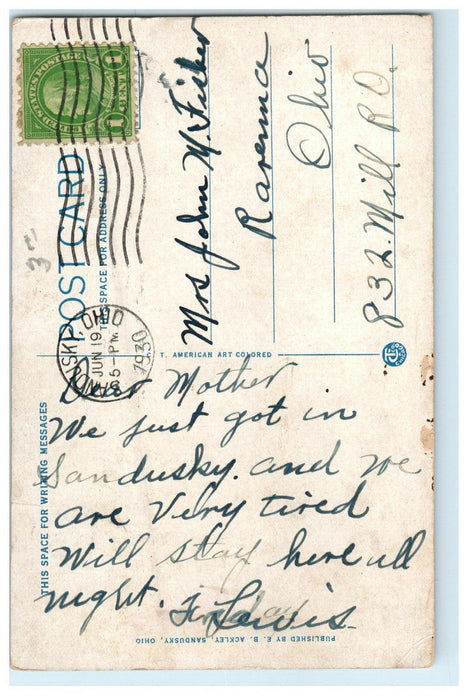 UNITED STATES POSTAGE
1 CENT 1
POST CARD
THIS SPACE FOR ADDRESS ONLY
SANDUSKY, OHIO
JUN 19
5-PM
1930
Mrs John W. Fisher
Ravenna
Ohio
832. Mill RD.
T. AMERICAN ART COLORED
THIS SPACE FOR WRITING MESSAGES
Dear Mother
We just got in
Sandusky. and we
are very tired
Will stay here all
night.
Lewis
PUBLISHED BY E. B. ACKLEY, SANDUSKY, OHIO